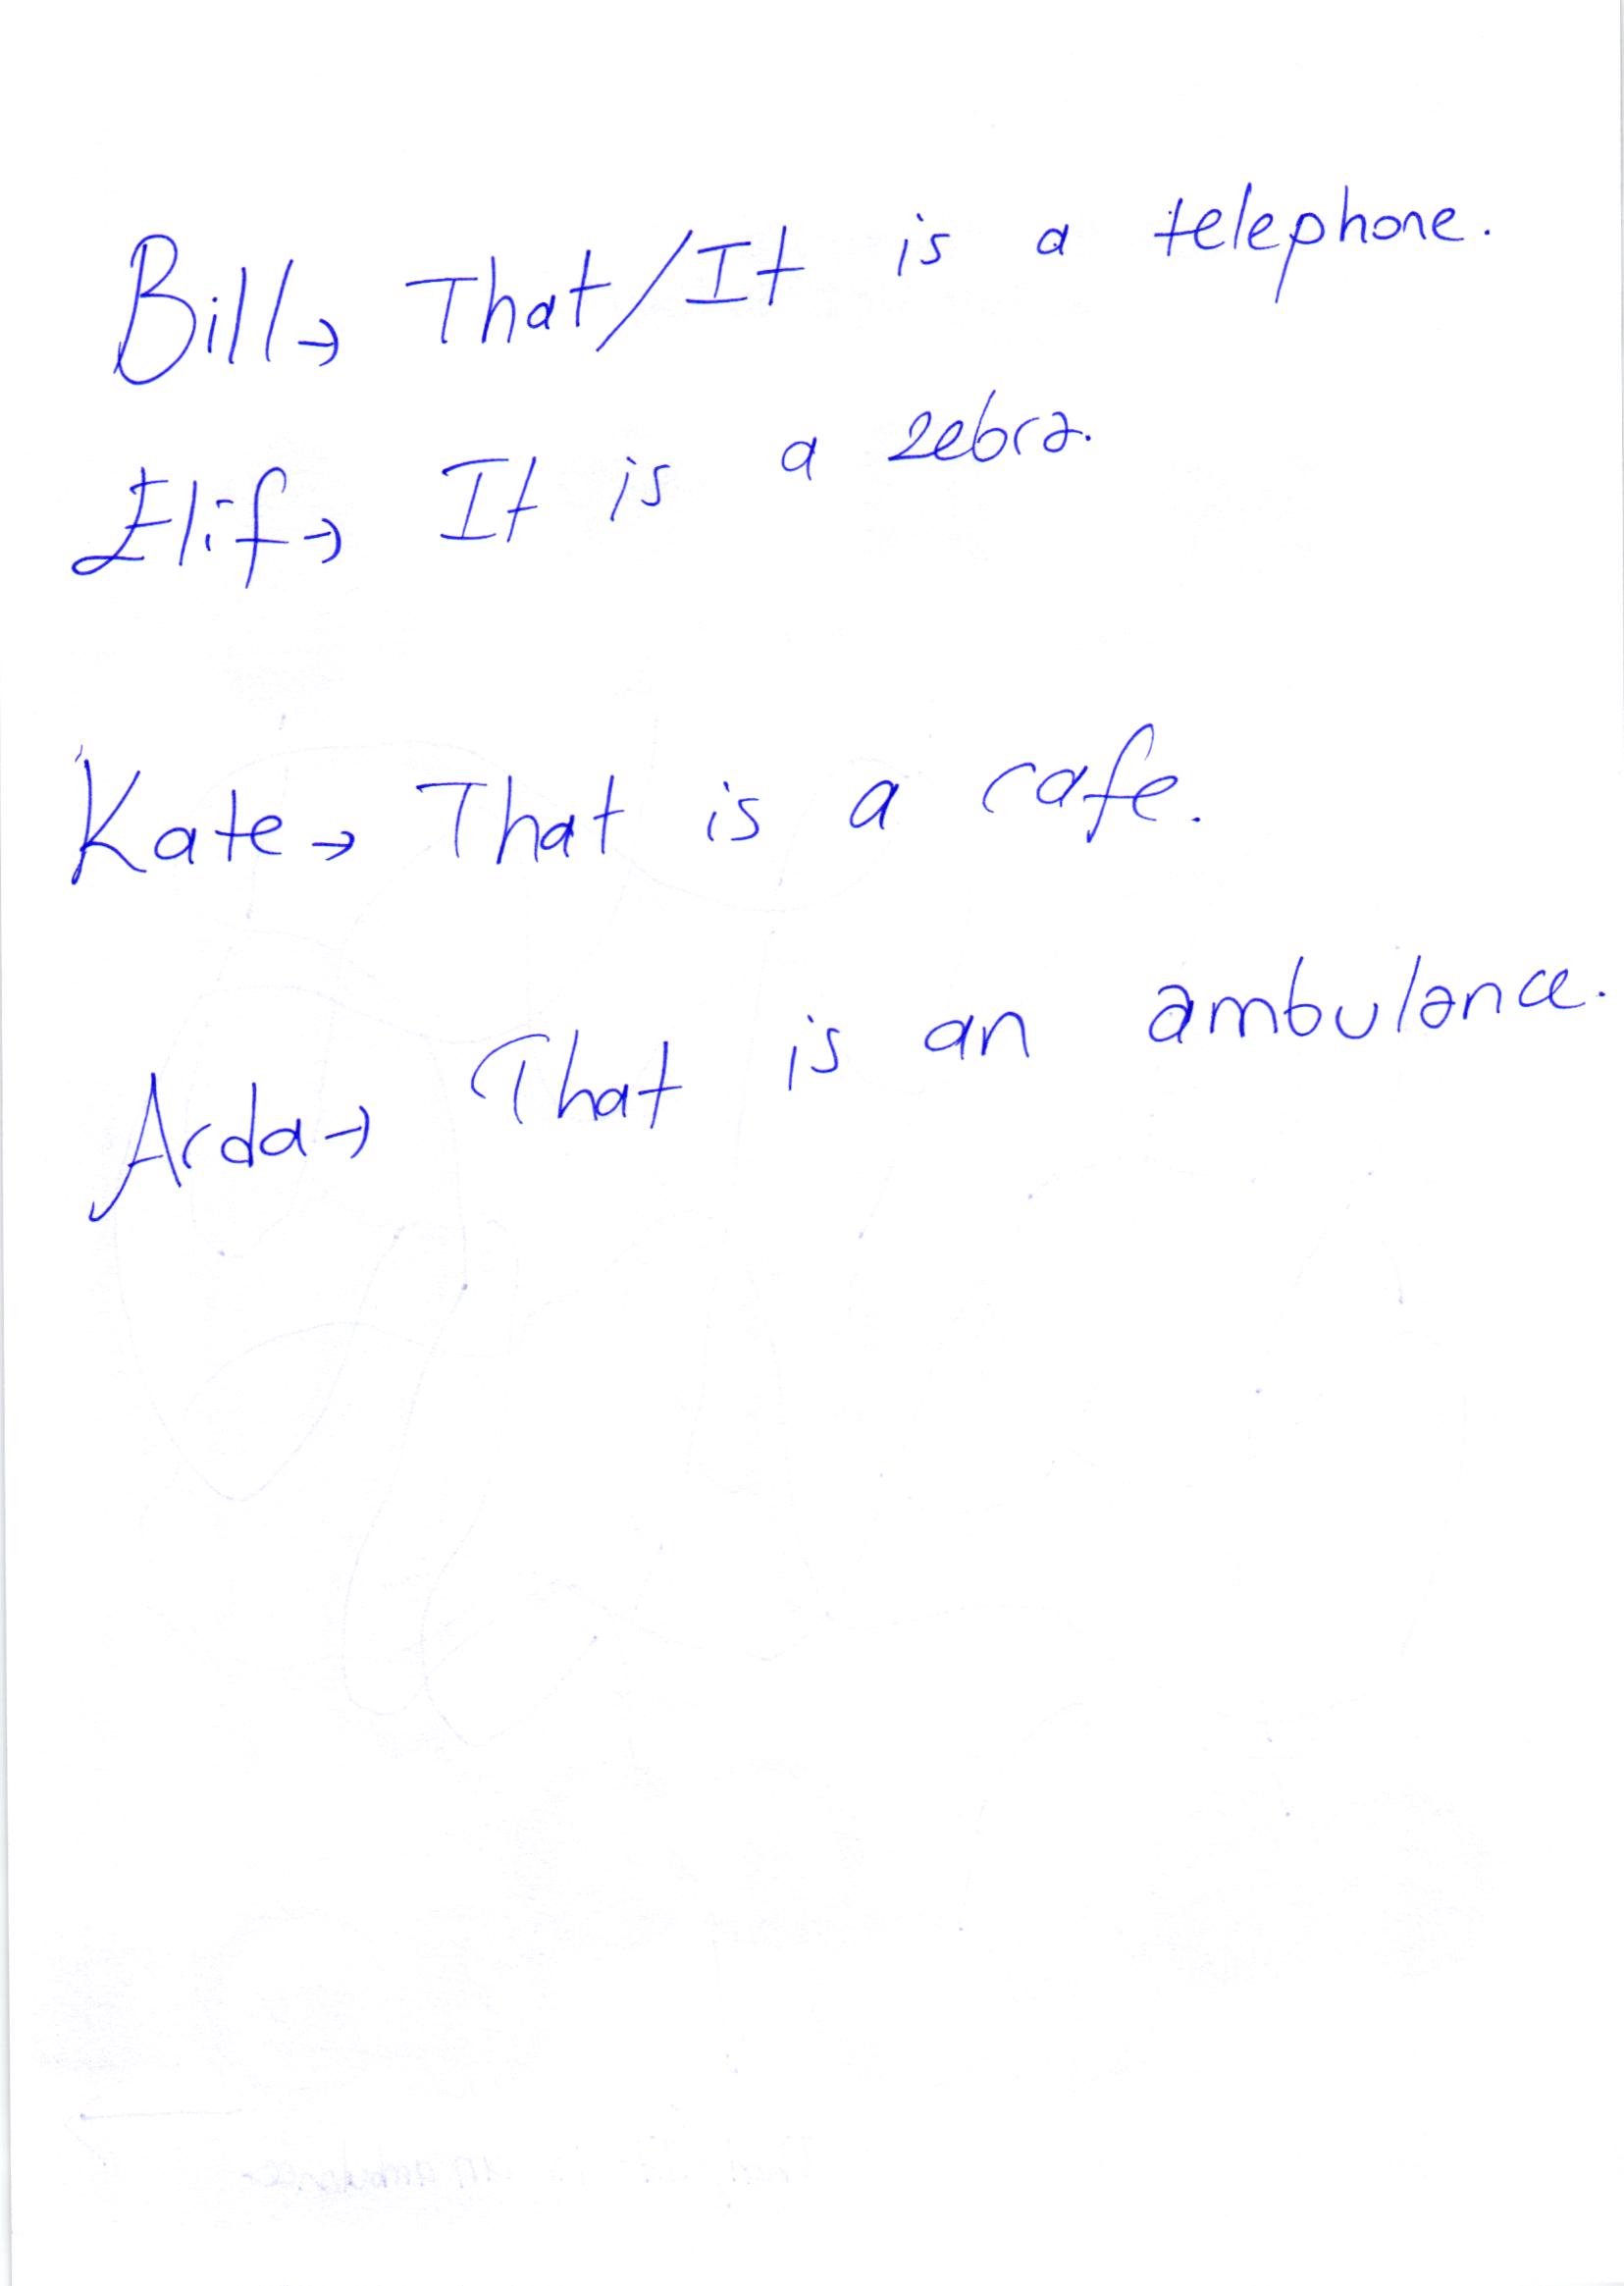 Bill→ That/It is a telephone.
Elif→ It is a zebra.
Kate→ That is a cafe.
Arda→ That is an ambulance.